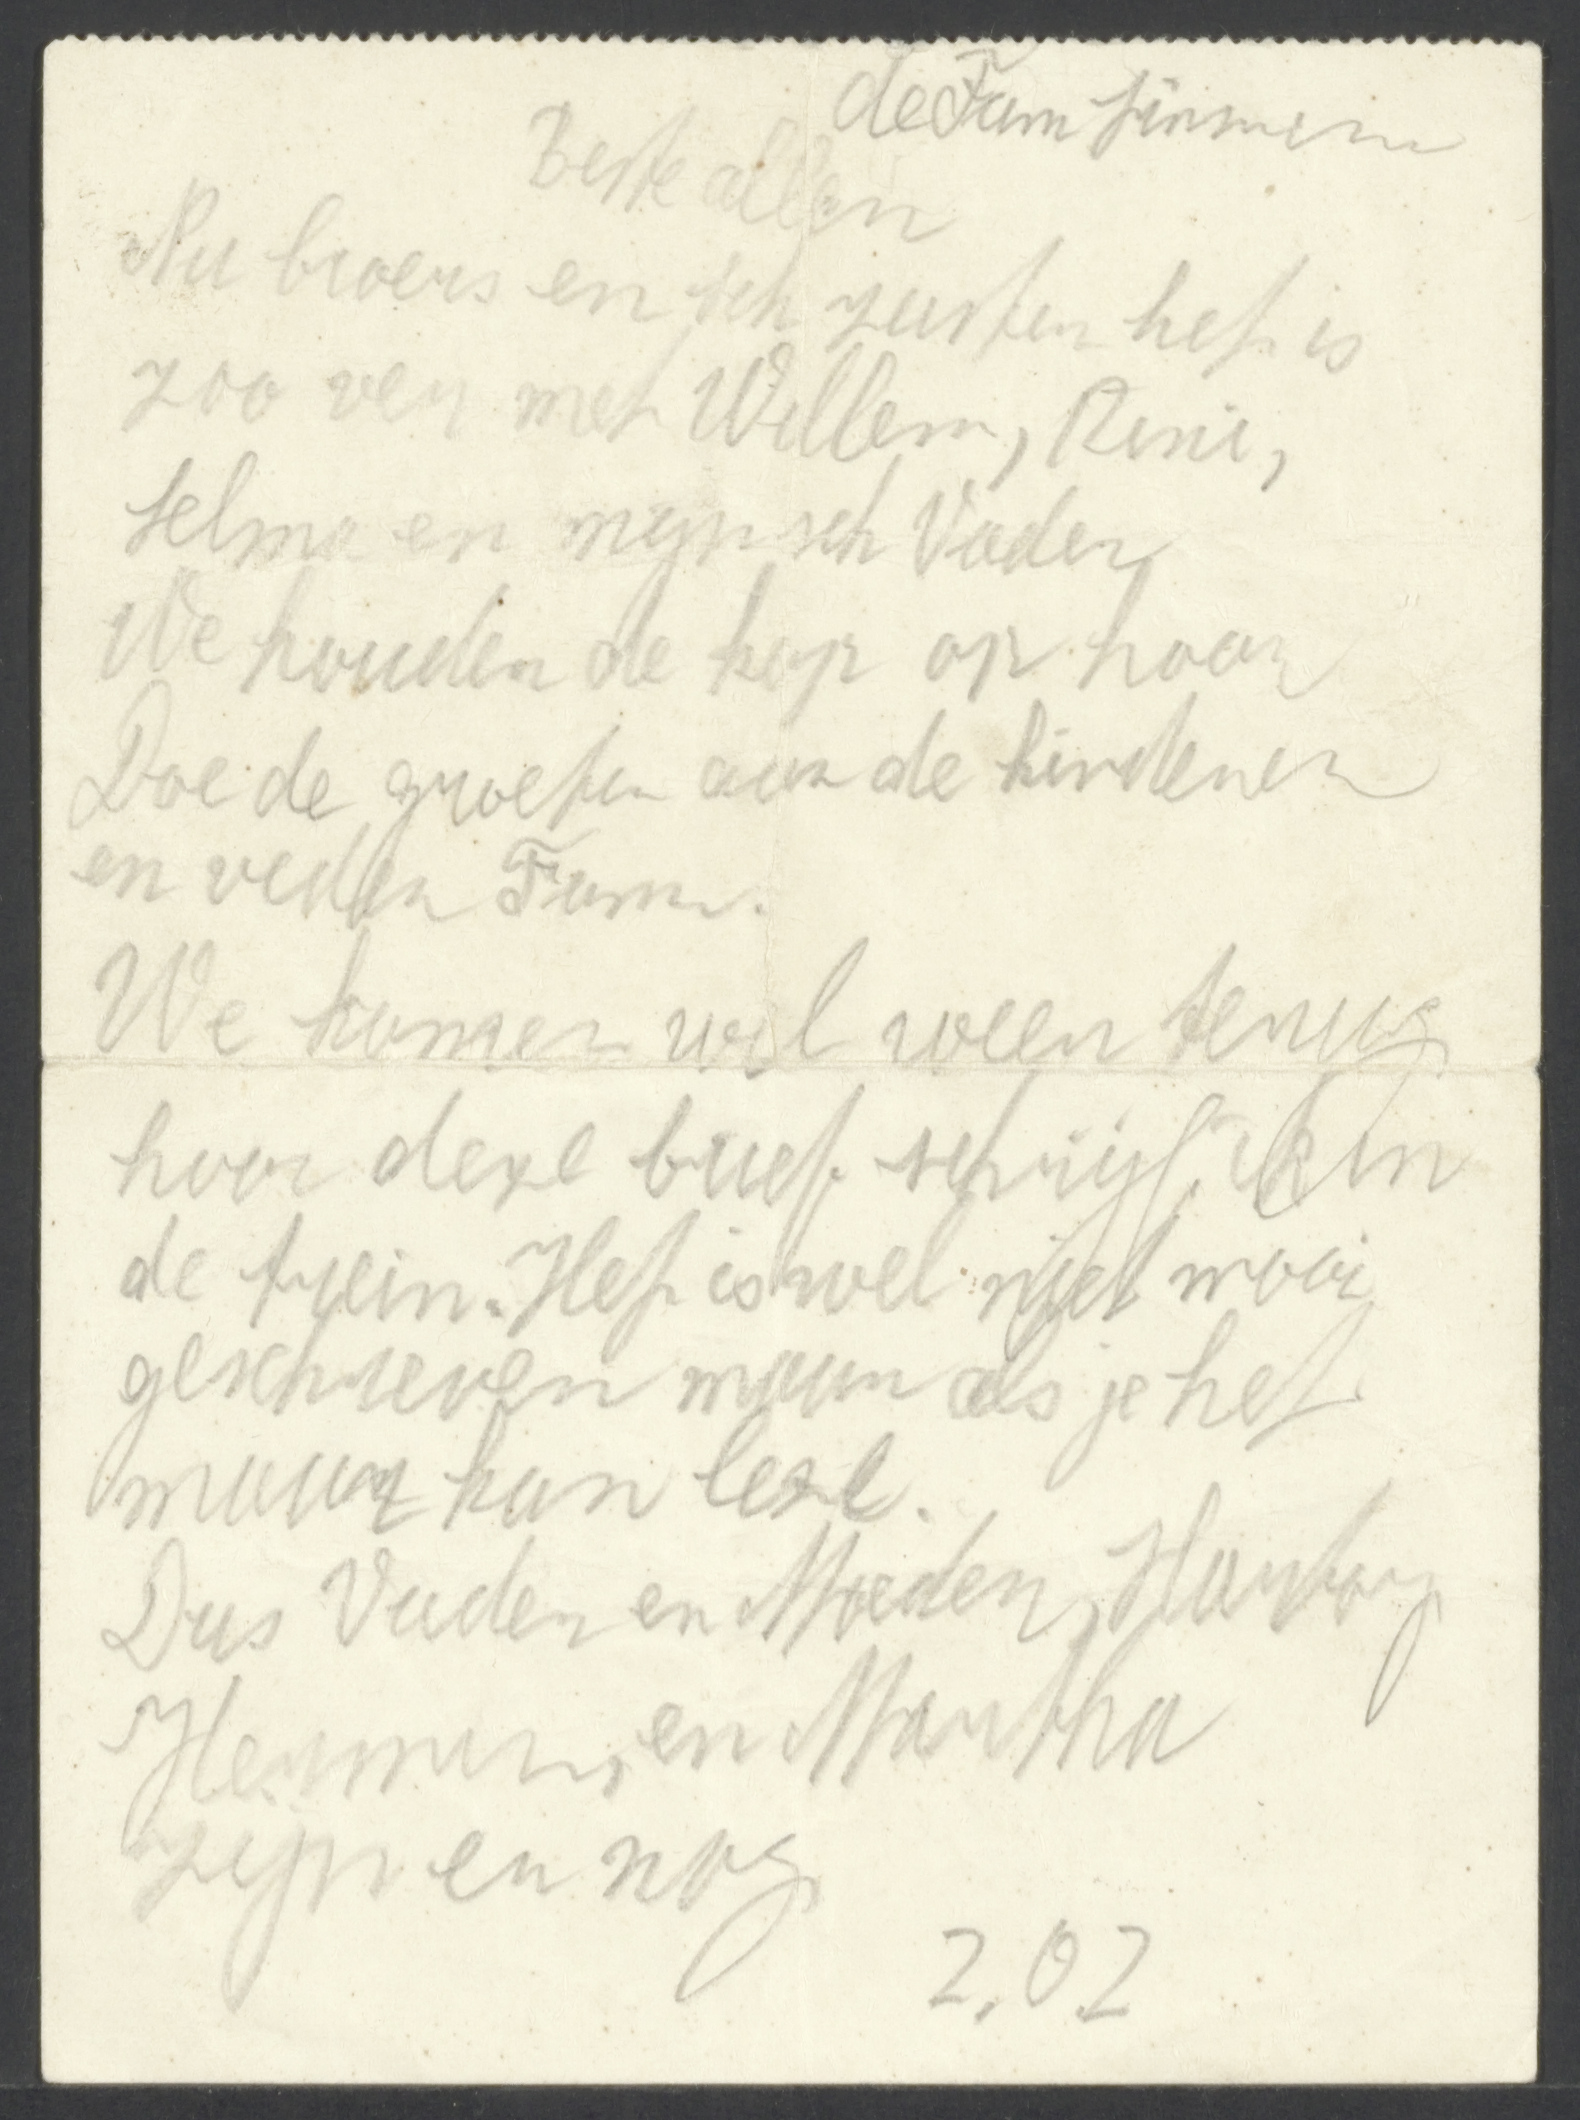 de Fam
Beste allen
Nu broers en sch zusten het is
zoo ver met Willem, Rini,
Selma en mijn sch Vader
We houden de kop op hoor
Doe de groeten aan de kinderen
en verder Fam.
We komen wel weer terug
hoor deze brief schrijf ik in
de trein. Het is wel niet mooi
geschreven maar als je het
maar kan leze.
Dus Vader en Moeder, Hartog
Herman, en Martha
zijn er nog
Z.O.Z